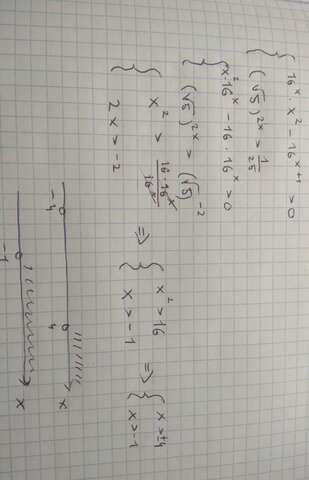 { 16^x · x^2 - 16^(x+1) > 0
{ (√5)^(2x) > 1/25
{ x^2 · 16^x - 16 · 16^x > 0
{ (√5)^(2x) > (√5)^(-2)
{ x^2 > 16·16^x / 16^x ⇒ { x^2 > 16 ⇒ { x > ±4
{ 2x > -2 { x > -1 { x > -1
-4 4 x
-1 x